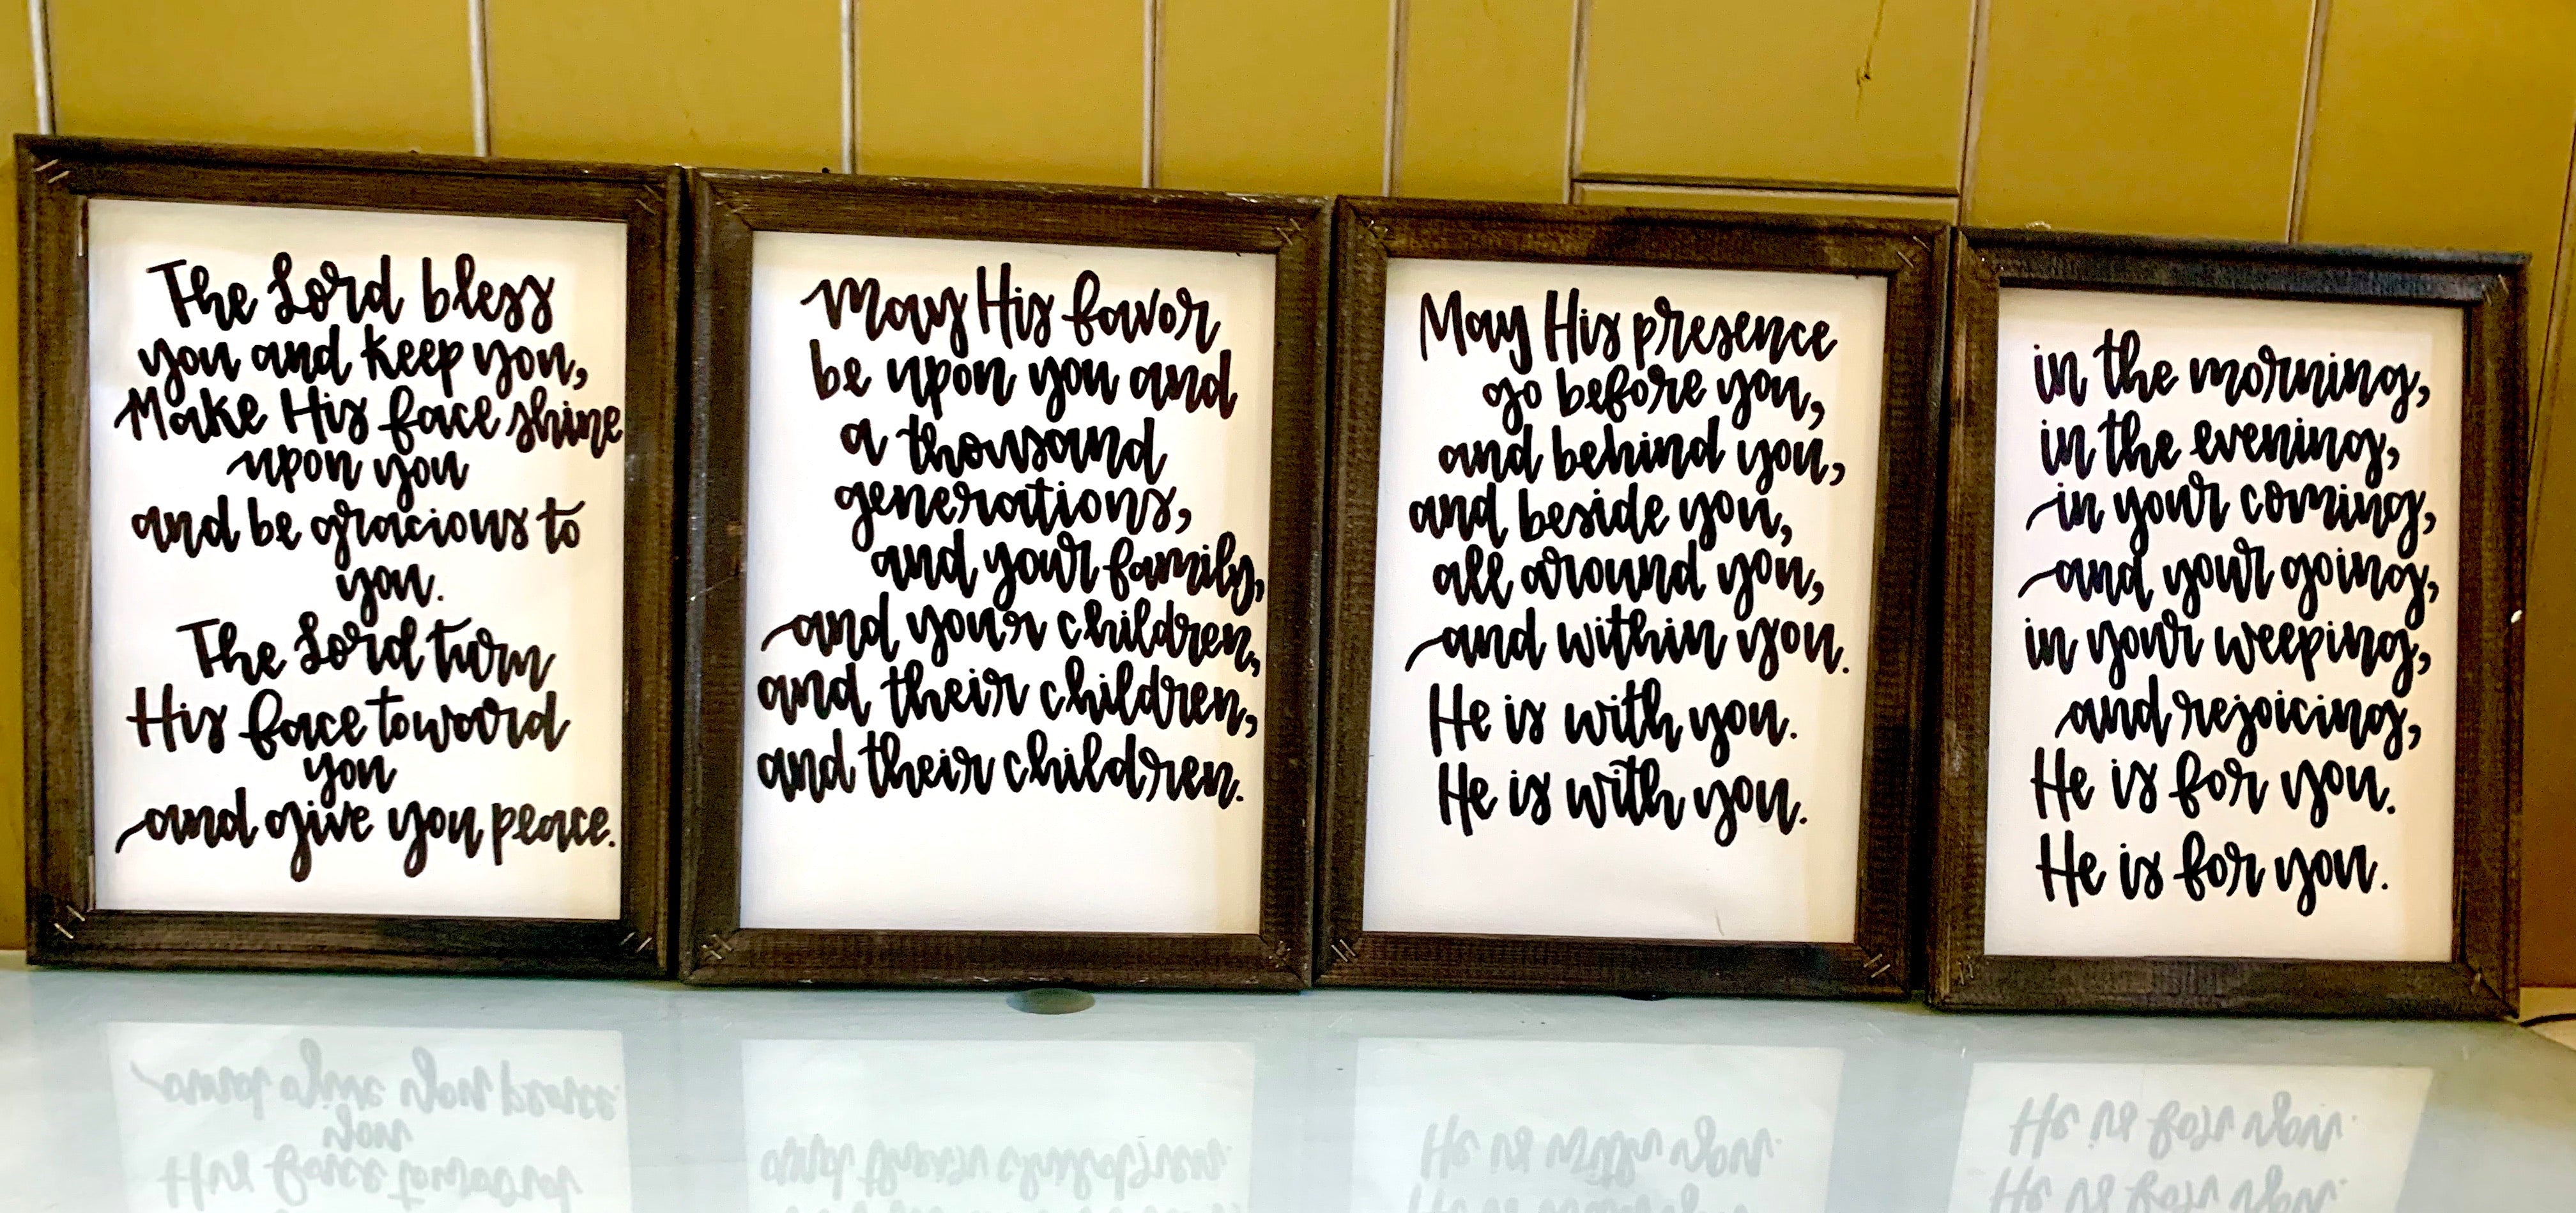 The Lord bless
you and keep you,
Make His face shine
upon you
and be gracious to
you.
The Lord turn
His face toward
you
and give you peace.
May His favor
be upon you and
a thousand
generations,
and your family,
and your children,
and their children,
and their children.
May His presence
go before you,
and behind you,
and beside you,
all around you,
and within you.
He is with you.
He is with you.
in the morning,
in the evening,
in your coming,
and your going,
in your weeping,
and rejoicing,
He is for you.
He is for you.